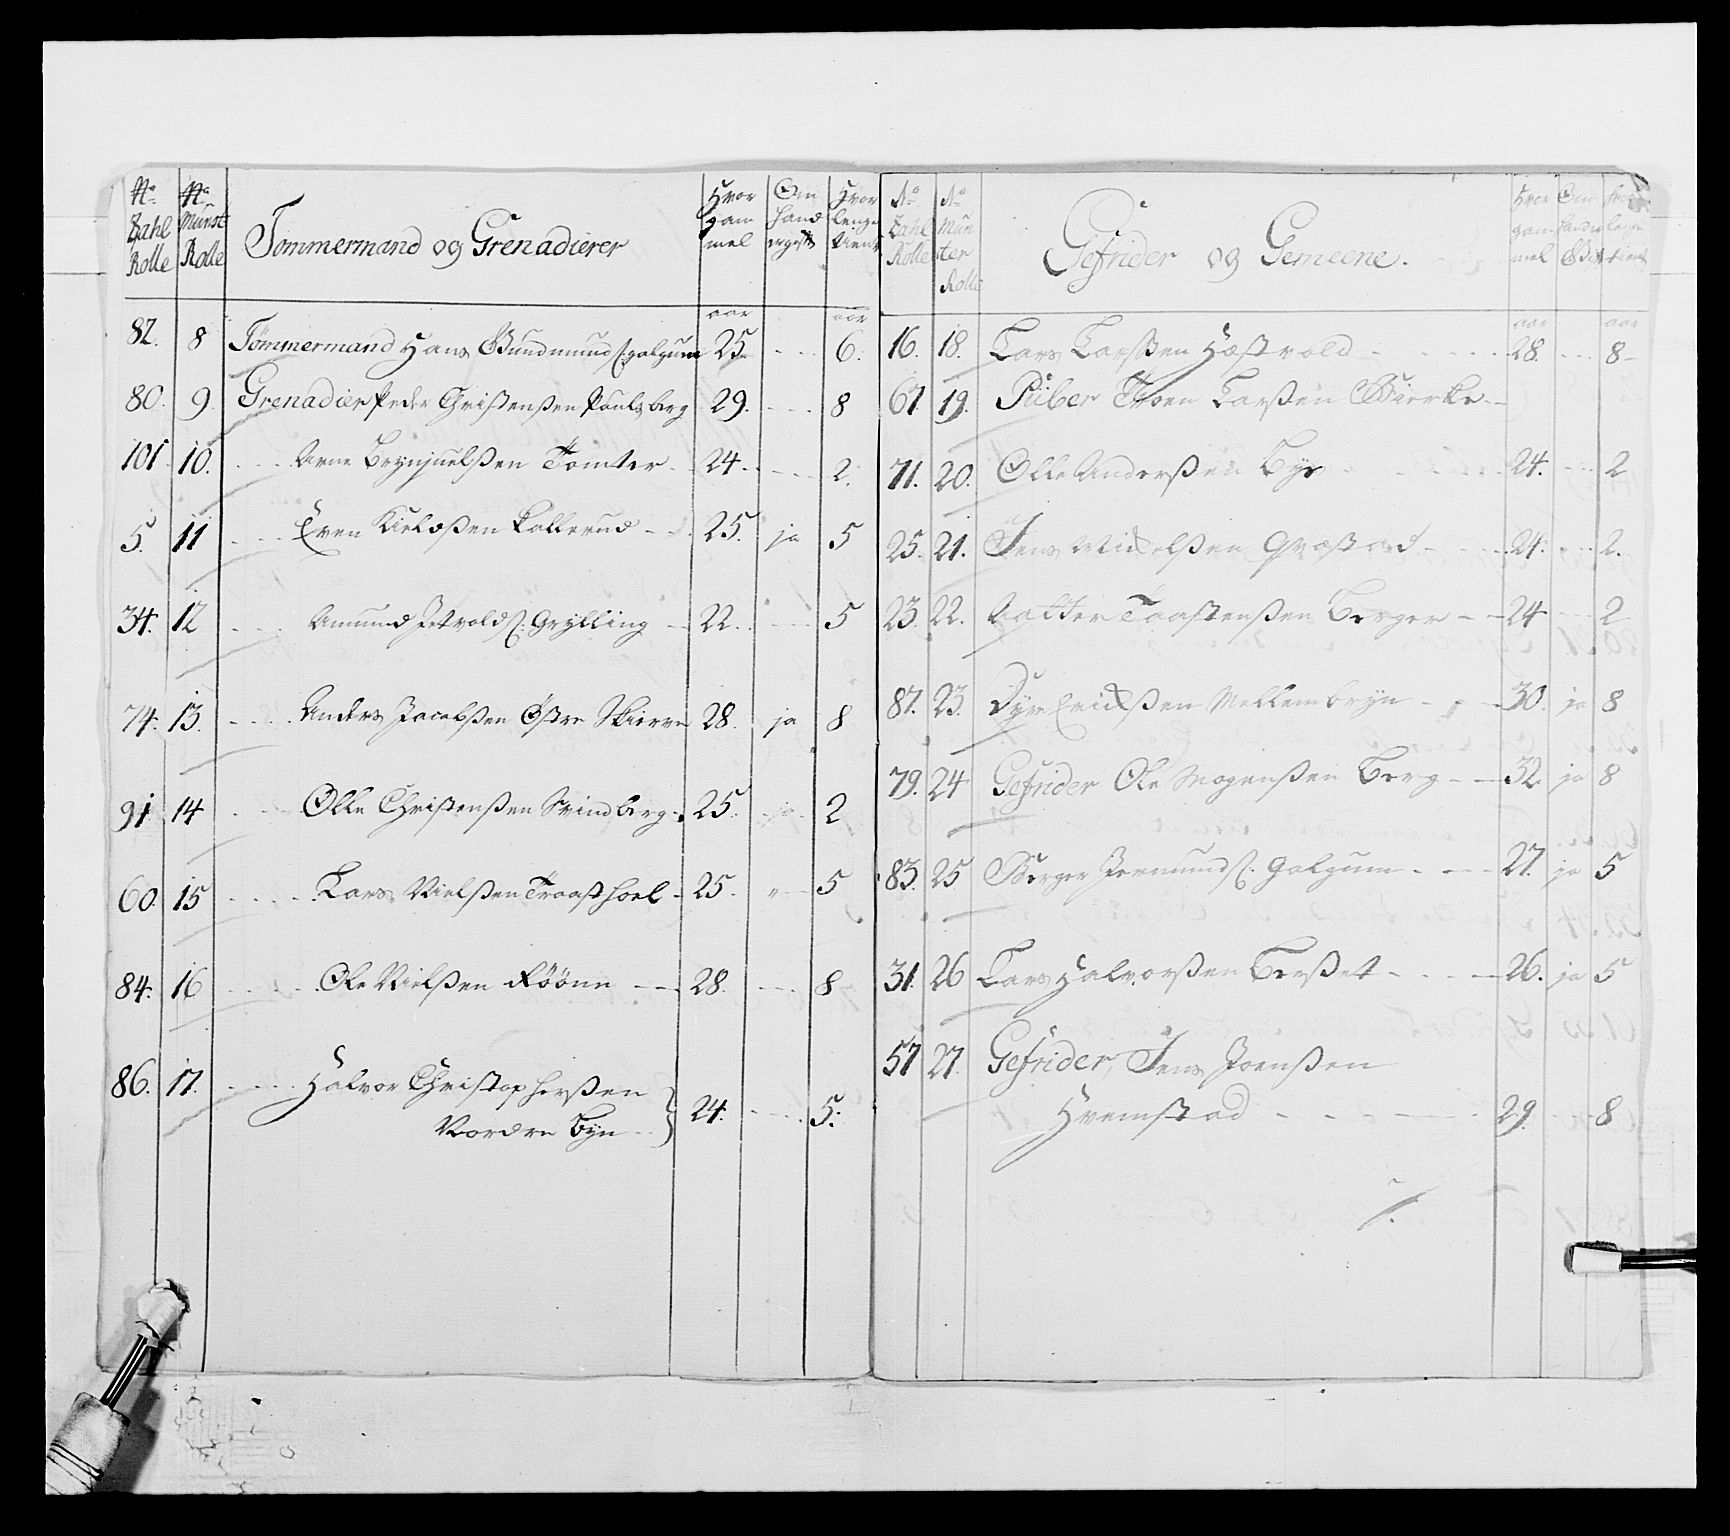 No Zahl Rolle | No Münst Rolle | Tömmermand og Grenadierer | Hvor gam mel | Om hand er gift | Hvor lenge tient
aar | aar
82. | 8 | Tömmermand Hans Gundmunds: galgum | 25. | - - - | 6.
80. | 9. | Grenadier Peder Christenßen Paulsberg | 29. | - - - | 8
101 | 10. | - - - Arne Brynjuelßen Tomter | 24. | - - - | 2.
5. | 11 | - - - Even Kieldßen Kollerud | 25. | ja | 5
34. | 12 | - - - Amund s: Grylling | 22. | - - - | 5
74. | 13. | - - - Anders Jacobßen Östre | 28. | ja | 8
91 | 14 | - - - Olle Christenßen Svindberg | 25. | ja | 2
60. | 15 | - - - Lars Nielßen Traasthoel | 25. | " | 5
84. | 16 | - - - Ole Nielßen Röönn | 28. | - - - | 8
86. | 17. | - - - Halvor Christopherßen
Nordre Byn | 24. | - - - | 5.
No Zahl Rolle | No Mün ster Rolle | Gefrider og Gemeene. | Hvor gam mel | Om hand er Gift | Hvor lenge tient
aar | aar
16. | 18. | Lars Larßen Hæstvold | 28. | - - - | 8
67. | 19. | Piiber Thoen Larßen Bierke
71. | 20. | Olle Anderßen Bye | 24. | - - - | 2
25. | 21. | Jens Mickelßen Qvæstad | 24. | - - - | 2.
23. | 22. | Taastenßen Berger | 24 | - - - | 2
87. | 23. | Dyre Erickßen Mellembryn | 30. | ja | 8
79. | 24 | Gefrider Ole Mogenßen Berg | 32. | ja | 8
83. | 25 | Berger s: Galgum | 27. | ja | 5
31. | 26 | Lars Halvorßen Berßet | 26. | ja | 5
57 | 27. | Gefrider, Jens Joenßen
Hvemstad | 29. | - - - | 8